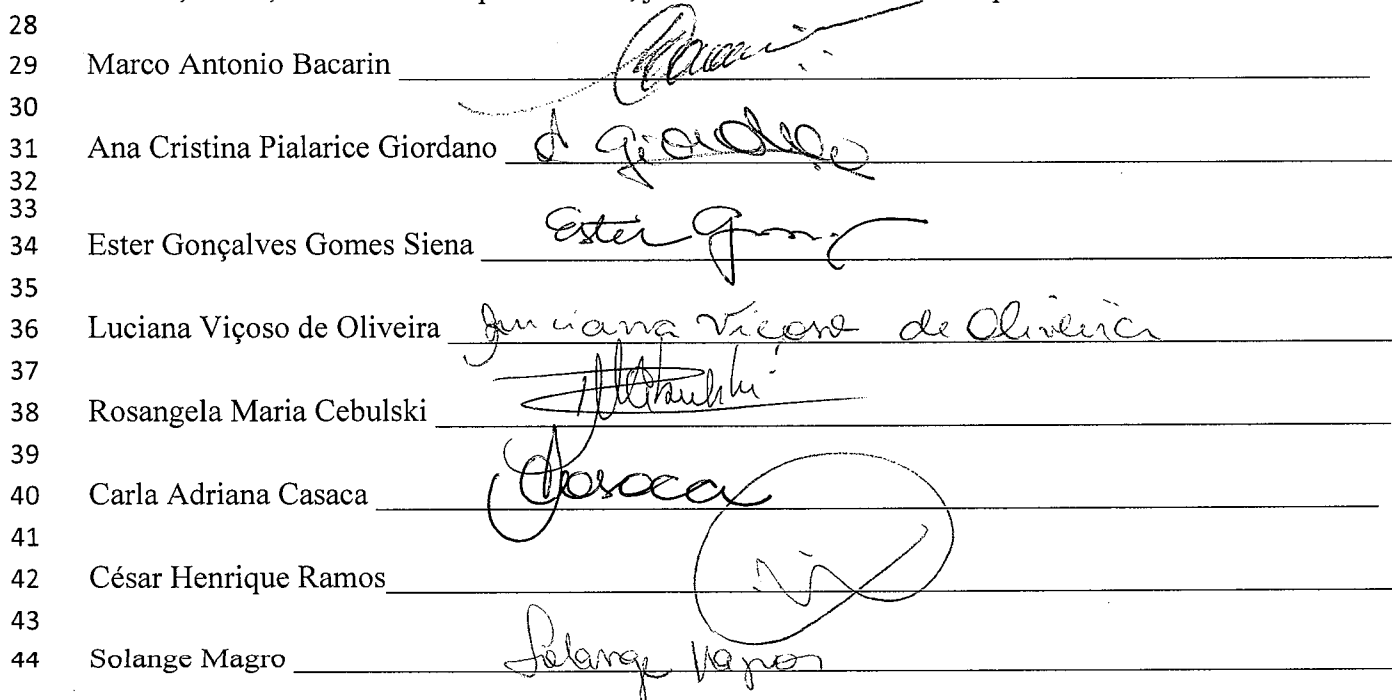 28
29 Marco Antonio Bacarin
30
31 Ana Cristina Pialarice Giordano Giordano
32
33
34 Ester Gonçalves Gomes Siena Ester
35
36 Luciana Viçoso de Oliveira Luciana Viçoso de Oliveira
37
38 Rosangela Maria Cebulski
39
40 Carla Adriana Casaca Casaca
41
42 César Henrique Ramos
43
44 Solange Magro Solange